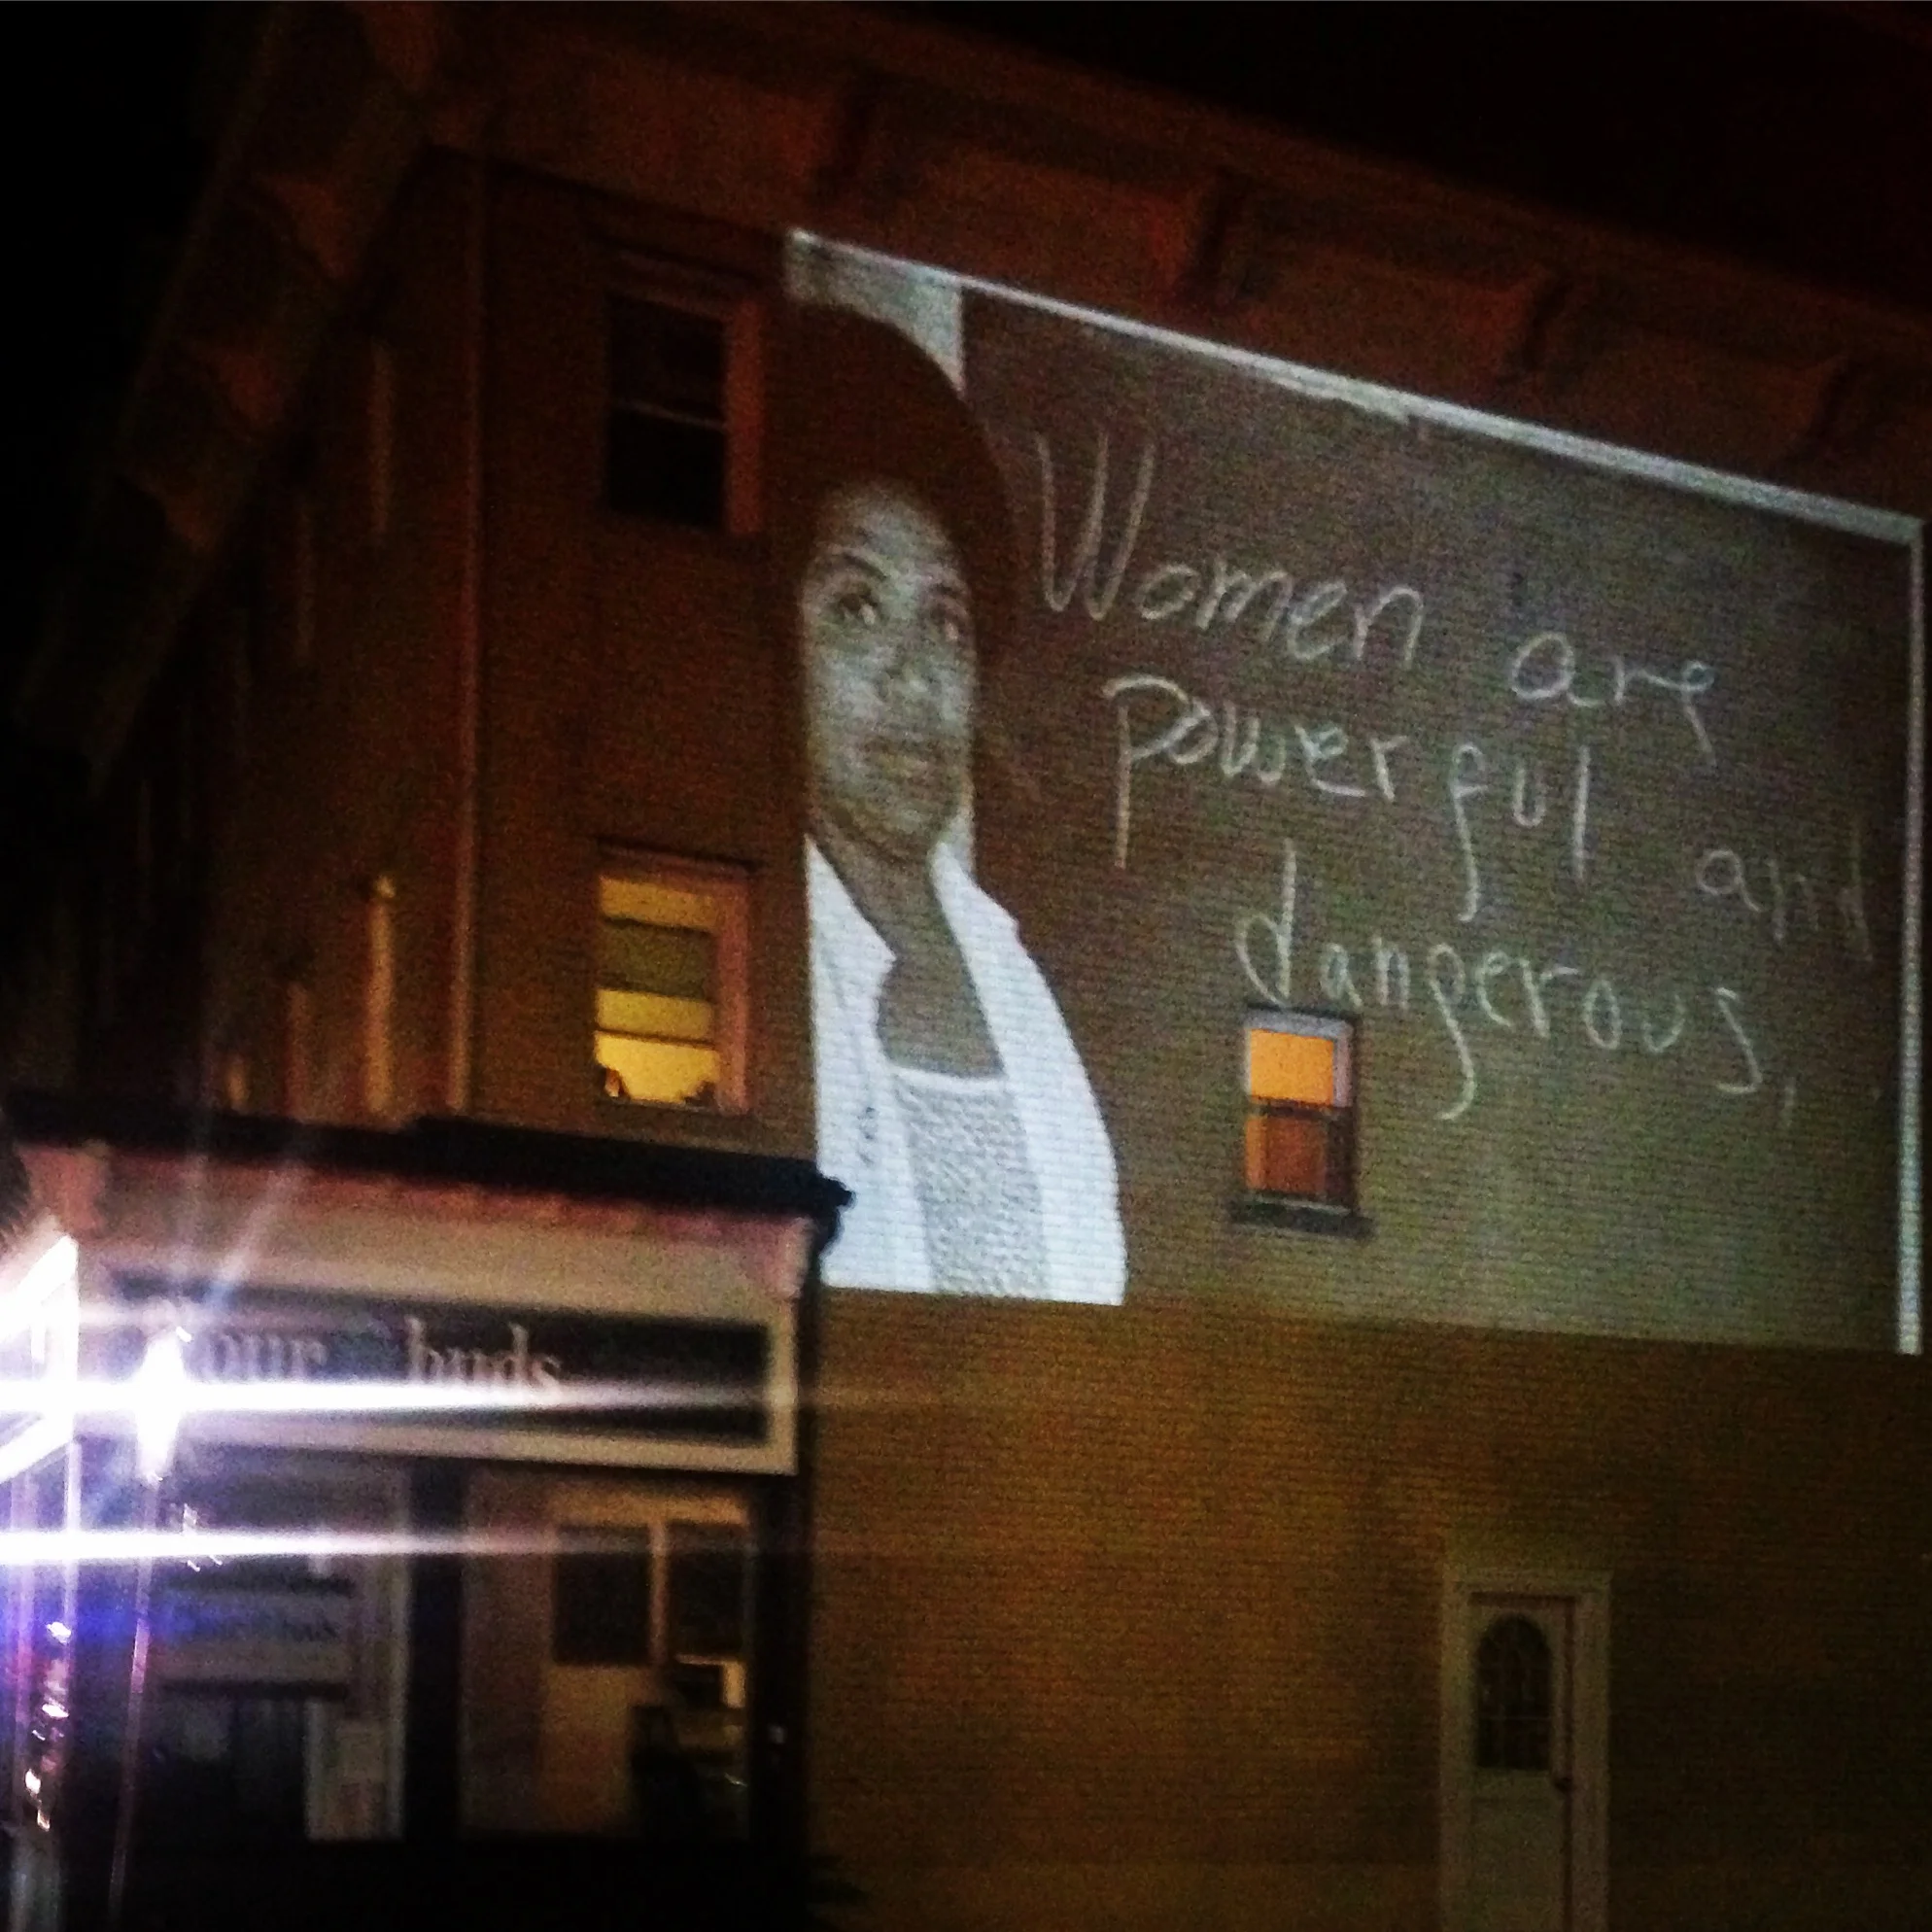 Women are
powerful and
dangerous,
buds